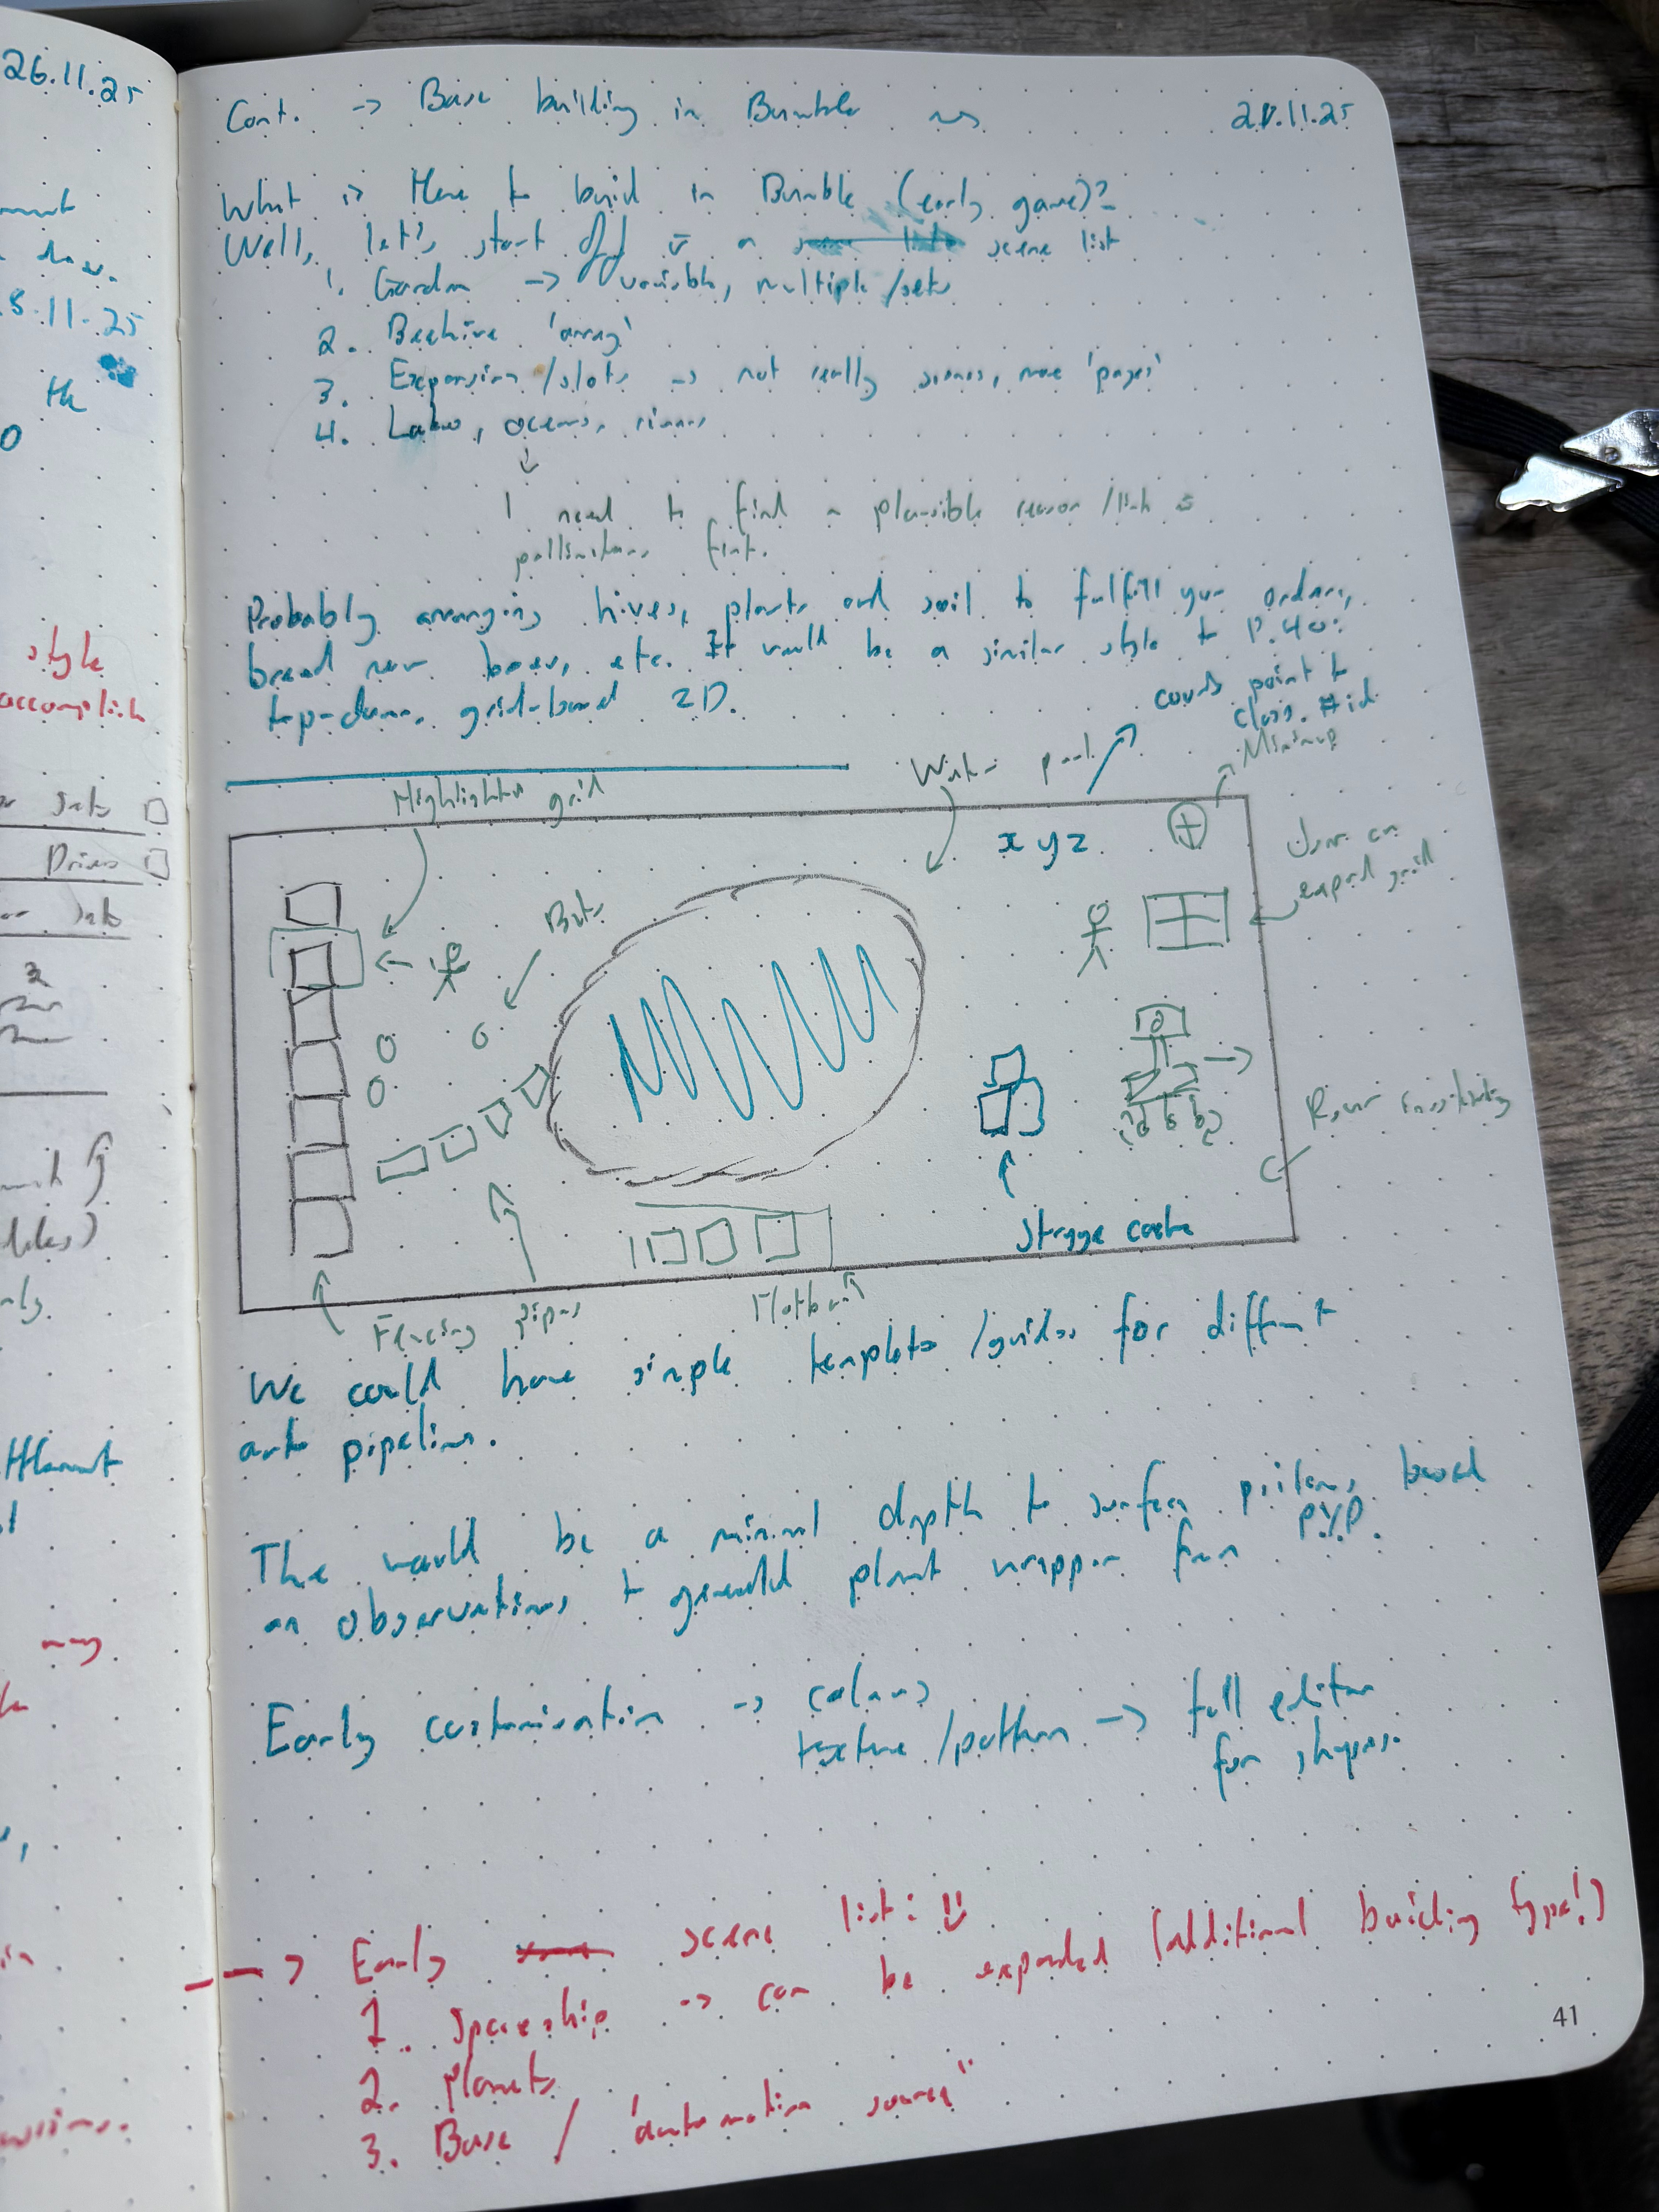 26.11.25
style
accomplish
Cont. -> Base building in Bumble
What is there to build in Bumble (early game)?
Well, let's start off a scene list
1. Garden -> variable, multiple /sets
2. Beehive 'array'
3. Expansion /slots -> not really scenes, more 'pages'
4. Lakes, oceans, rivers
I need to find a plausible reason /link
pollinators first.
Probably arranging hives, plants and soil to fulfill your orders,
breed new bees, etc. It would be a similar style to P.40:
top-down, grid-based 2D.
could point to
class. #id
Minimap
Highlighter grid
Water pool
x y z
User can
expand grid
Bots
Storage cache
Rover
Fencing pipes
Flatbed
We could have simple templates /guides for different
art pipelines.
There would be a minimal depth to surface
on observations + general plant wrapper from PYP.
Early customisation -> colours
texture /pattern -> full editor
for shapes.
--> Early scene list:
1. Spaceship -> can be expanded (additional building type!)
2. Planets
3. Base / 'automation source"
41